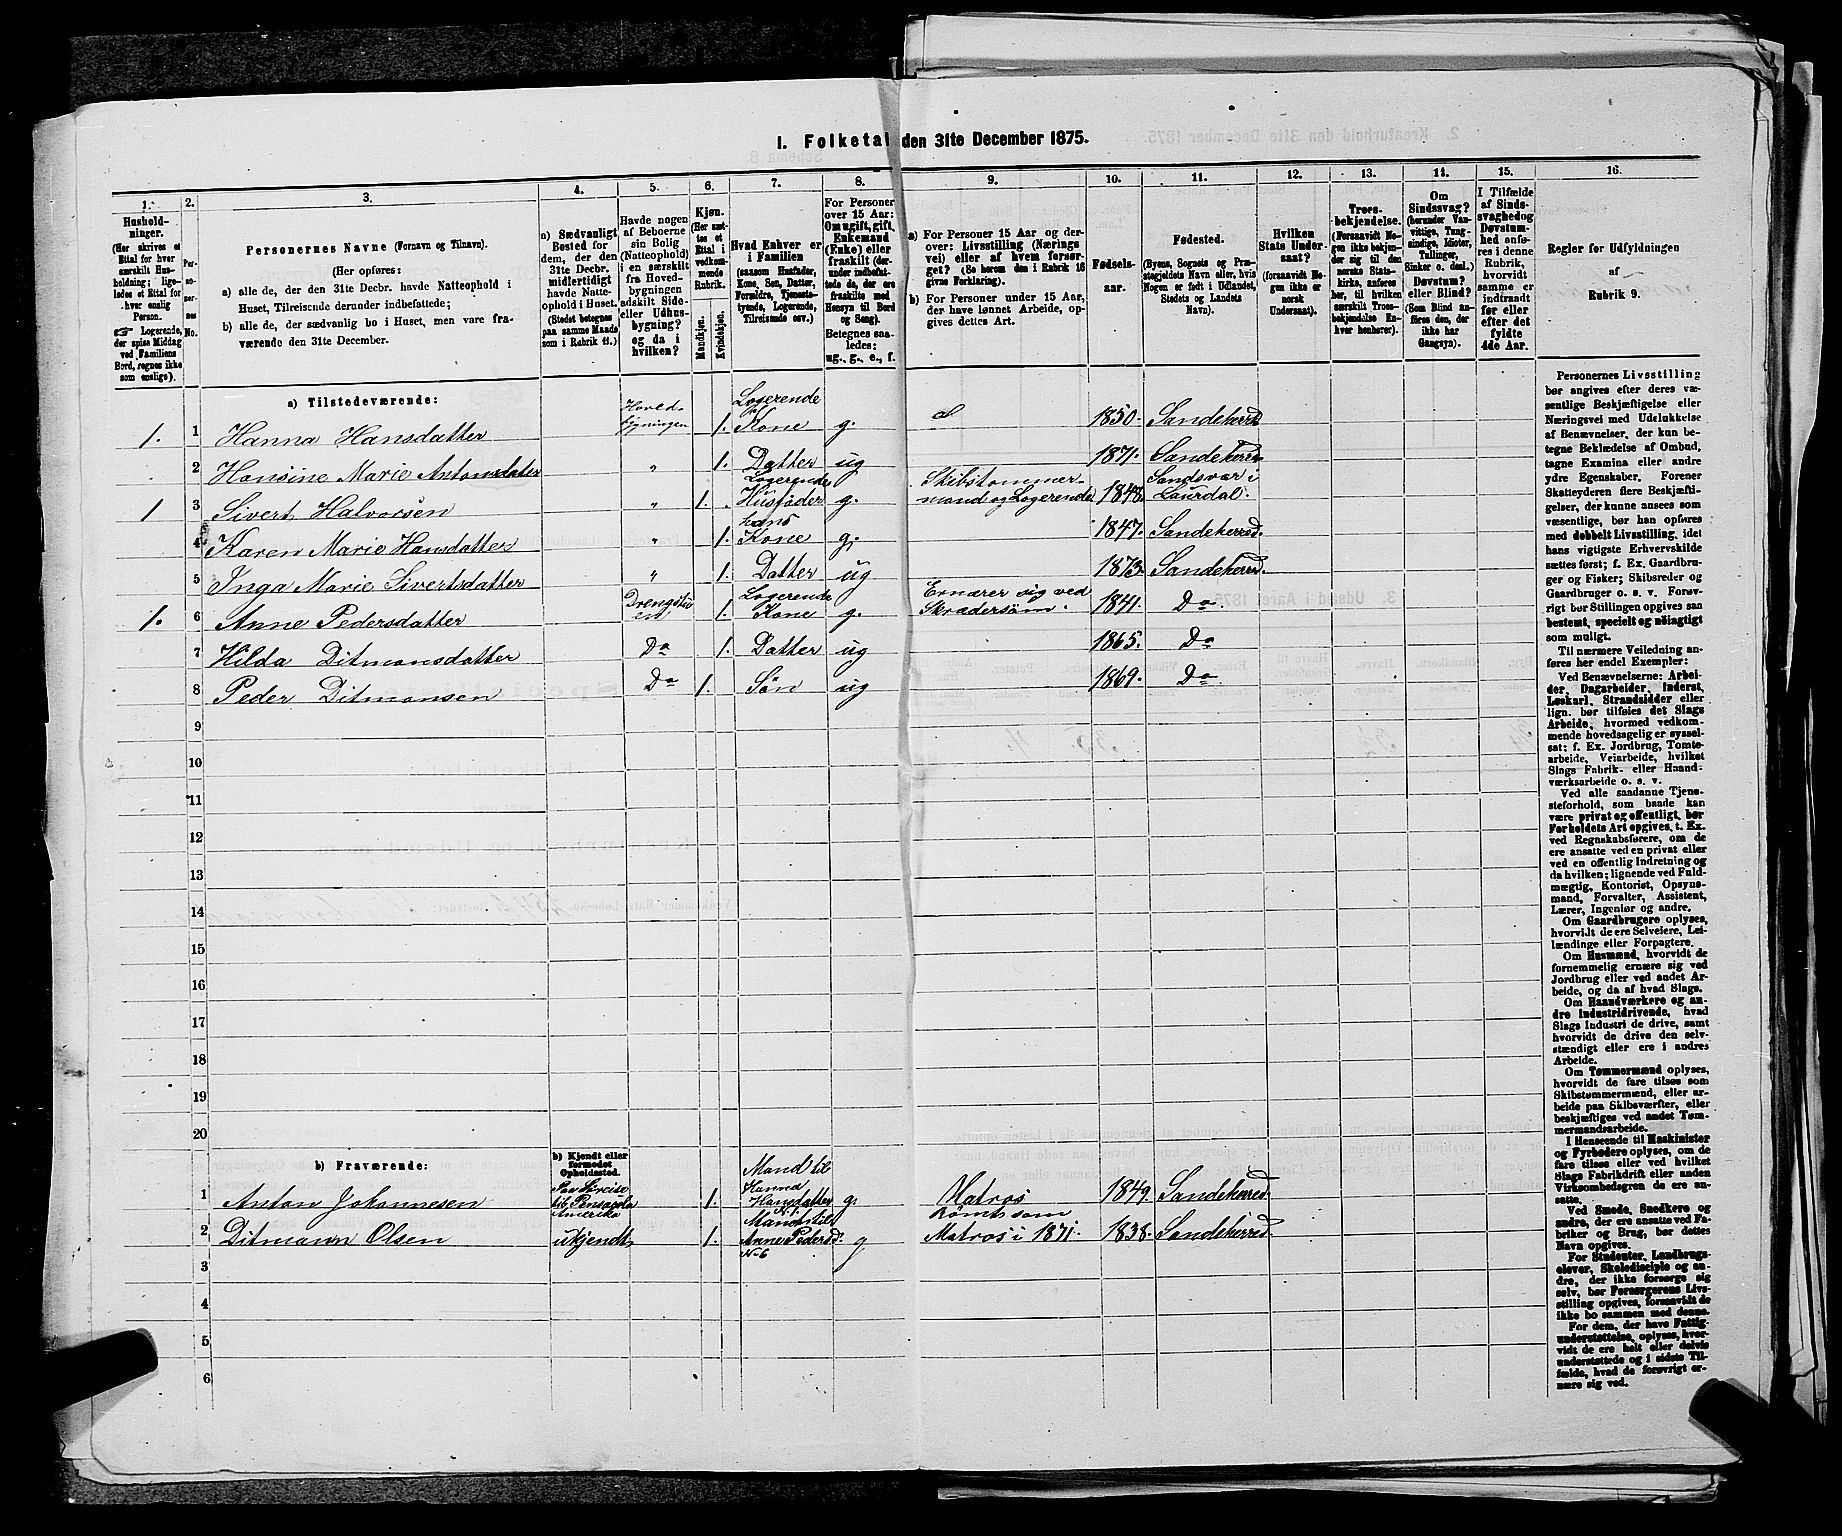 1. Folketal den 31te December 1875.
1. 2. 3. 4. 5. 6. 7. 8. 9. 10. 11. 12. 13. 14. 15. 16.
Hushold-
ninger.
(Her skrives et
Ettal for hver
særskilt Hus-
holdning; lige-
ledes et Ettal for
hver enslig
Person.
☞ Logerende,
der spise Middag
ved Familiens
Bord, regnes ikke
som enslige).
Personernes Navne (Fornavn og Tilnavn).
(Her opføres:
a) alle de, der den 31te Decbr. havde Natteophold i
Huset, Tilreisende derunder indbefattede;
b) alle de, der sædvanlig bo i Huset, men vare fra-
værende den 31te December.
a) Sædvanligt
Bosted for
dem, der den
31te Decbr.
midlertidigt
havde Natte-
ophold i Huset.
(Stedet betegnes
paa samme Maade
som i Rubrik 11.)
Havde nogen
af Beboerne
sin Bolig
(Natteophold)
i en særskilt
fra Hoved-
bygningen
adskilt Side-
eller Udhus-
bygning?
og da i
hvilken?
Kjøn.
(Her sæt-
tes et
Ettal i
vedkom-
mende
Rubrik.
Mandkjøn.
Kvindekjøn.
Hvad Enhver er
i Familien
(saasom Husfader,
Kone, Søn, Datter,
Forældre, Tjeneste-
tyende, Logerende,
Tilreisende osv.)
For Personer
over 15 Aar:
Om ugift, gift,
Enkemand
(Enke) eller
fraskilt (der-
under indbefat-
tede de, der ere
fraskilte med
Hensyn til Bord
og Seng).
Betegnes saa-
ledes:
ug., g., e., f.
a) For Personer 15 Aar og der-
over: Livsstilling (Nærings
vei) eller af hvem forsør-
get? (Se herom den i Rubrik 16
givne Forklaring).
b) For Personer under 15 Aar,
der have lønnet Arbeide, op-
gives dettes Art.
Fødsels-
aar.
Fødested.
(Byens, Sognets og Præ-
stegjeldets Navn eller, hvis
Nogen er født i Udlandet,
Stedets og Landets
Navn).
Hvilken
Stats Under-
saat?
(forsaavidt No-
gen ikke er
norsk
Undersaat).
Troes-
bekjendelse.
(Forsaavidt No-
gen ikke bekjen-
der sig til den
norske Stats-
kirke, anføres
her, til hvilken
særskilt Troes-
bekjendelse En-
hver henhører).
Om
Sindssvag?
(herunder Van-
vittige, Tung-
sindige, Idioter,
Tullinger,
Sinker o. desl.)
Døvstum?
eller Blind?
(Som Blind an-
føres den, der
ikke har
Gangsyn).
I Tilfælde
af Sinds-
svaghed og
Døvstum-
hed anfø-
res i denne
Rubrik,
hvorvidt
samme er
indtraadt
før eller
efter det
fyldte
4de Aar.
Regler for Udfyldningen
af
Rubrik 9.
a) Tilstedeværende:
1. 1 Hanna Hansdatter Hoved-
bygningen 1. Logerende
Kone g. 1850. Sandeherred
2 Hansine Marie Antonsdatter " 1. Datter ug 1871. Sandeherred
1 3 Sivert Halvorsen " 1. Logerende
Husfader g. Skibstømmer-
mand og Logerende 1848 Sandsvær i
Laurdal.
4 Karen Marie Hansdatter " 1. hans
Kone g. 1847. Sandeherred.
5 Inga Marie Sivertsdatter " 1. Datter ug 1873. Sandeherred.
1. 6 Anne Pedersdatter 1. Logerende
Kone g. Ernærer sig ved
Skrædersøm. 1841. Do
7 Hilda Ditmansdatter Do 1. Datter ug 1865. Do
8 Peder Ditmansen Do 1. Søn ug 1869. Do
9
10
11
12
13
14
15
16
17
18
19
20
b) Fraværende:
b) Kjendt eller
formodet
Opholdssted.
1 Anton Johannesen
til Pensacola
Amerika 1. Mand til
Hanna
Hansdatter g. Matros 1849. Sandeherred
2 Ditmann Olsen ukjendt 1. Mand til
Anne Pedersd.
N. 6 g Rømt som
Matros i 1871. 1838. Sandeherred.
3
4
5
6
Personernes Livsstilling
bør angives efter deres væ-
sentlige Beskjæftigelse eller
Næringsvei med Udelukkelse
af Benævnelser, der kun be-
tegne Beklædelse af Ombud,
tagne Examina eller andre
ydre Egenskaber. Forener
Skatteyderen flere Beskjæfti-
gelser, der kunne ansees som
væsentlige, bør han opføres
med dobbelt Livsstilling, idet
hans vigtigste Erhvervskilde
sættes først; f. Ex. Gaardbru-
ger og Fisker; Skibsreder og
Gaardbruger o. s. v. Forøv-
rigt bør Stillingen opgives saa
bestemt, specielt og nøiagtigt
som muligt.
Til nærmere Veiledning an-
føres her endel Exempler:
Ved Benævnelserne: Arbei-
der, Dagarbeider, Inderst,
Løskarl, Strandsidder eller
lign. bør tilføies det Slags
Arbeide, hvormed vedkom-
mende hovedsagelig er syssel-
sat; f. Ex. Jordbrug, Tomte-
arbeide, Veiarbeide, hvilket
Slags Fabrik- eller Haand-
værksarbeide o. s. v.
Ved alle saadanne Tjene-
steforhold, som baade kan
være privat og offentligt, bør
Forholdets Art opgives, t. Ex.
ved Regnskabsførere, om de
ere ansatte ved en privat eller
ved en offentlig Indretning og
da hvilken; lignende ved Fuld-
mægtig, Kontorist, Opsyns-
mand, Forvalter, Assistent,
Lærer, Ingeniør og andre.
Om Gaardbrugere oplyses,
hvorvidt de ere Selveiere, Lei-
lændinge eller Forpagtere.
Om Husmænd, hvorvidt de
fornemmelig ernære sig ved
Jordbrug eller ved andet Ar-
beide, og da af hvad Slags.
Om Haandværkere og an-
dre Industridrivende, hvad
Slags Industri de drive, samt
hvorvidt de drive den selv-
stændigt eller ere i andres
Arbeide.
Om Tømmermænd oplyses,
hvorvidt de fare tilsøs som
Skibstømmermænd, eller ar-
beide paa Skibsværfter, eller
beskjæftiges ved andet Tøm-
mermandsarbeide.
I Henseende til Maskinister
og Fyrbødere oplyses, om de
fare tilsøs eller ved hvilket
Slags Fabrikdrift eller anden
Virksomhedsgren de ere an-
satte.
Ved Smede, Snedkere og
andre, der ere ansatte ved Fa-
briker og Brug, bør dettes
Navn opgives.
For Studenter, Landbrugs-
elever, Skoledisciple og an-
dre, der ikke forsørge sig
selv, bør Forsørgerens Livs-
stilling opgives, forsaavidt de
ikke bo sammen med denne.
For dem, der have Fattig-
understøttelse, oplyses, hvor-
vidt de ere helt eller delvis
understøttede og i sidste Til-
fælde, hvad de forøvrigt er-
nære sig ved.